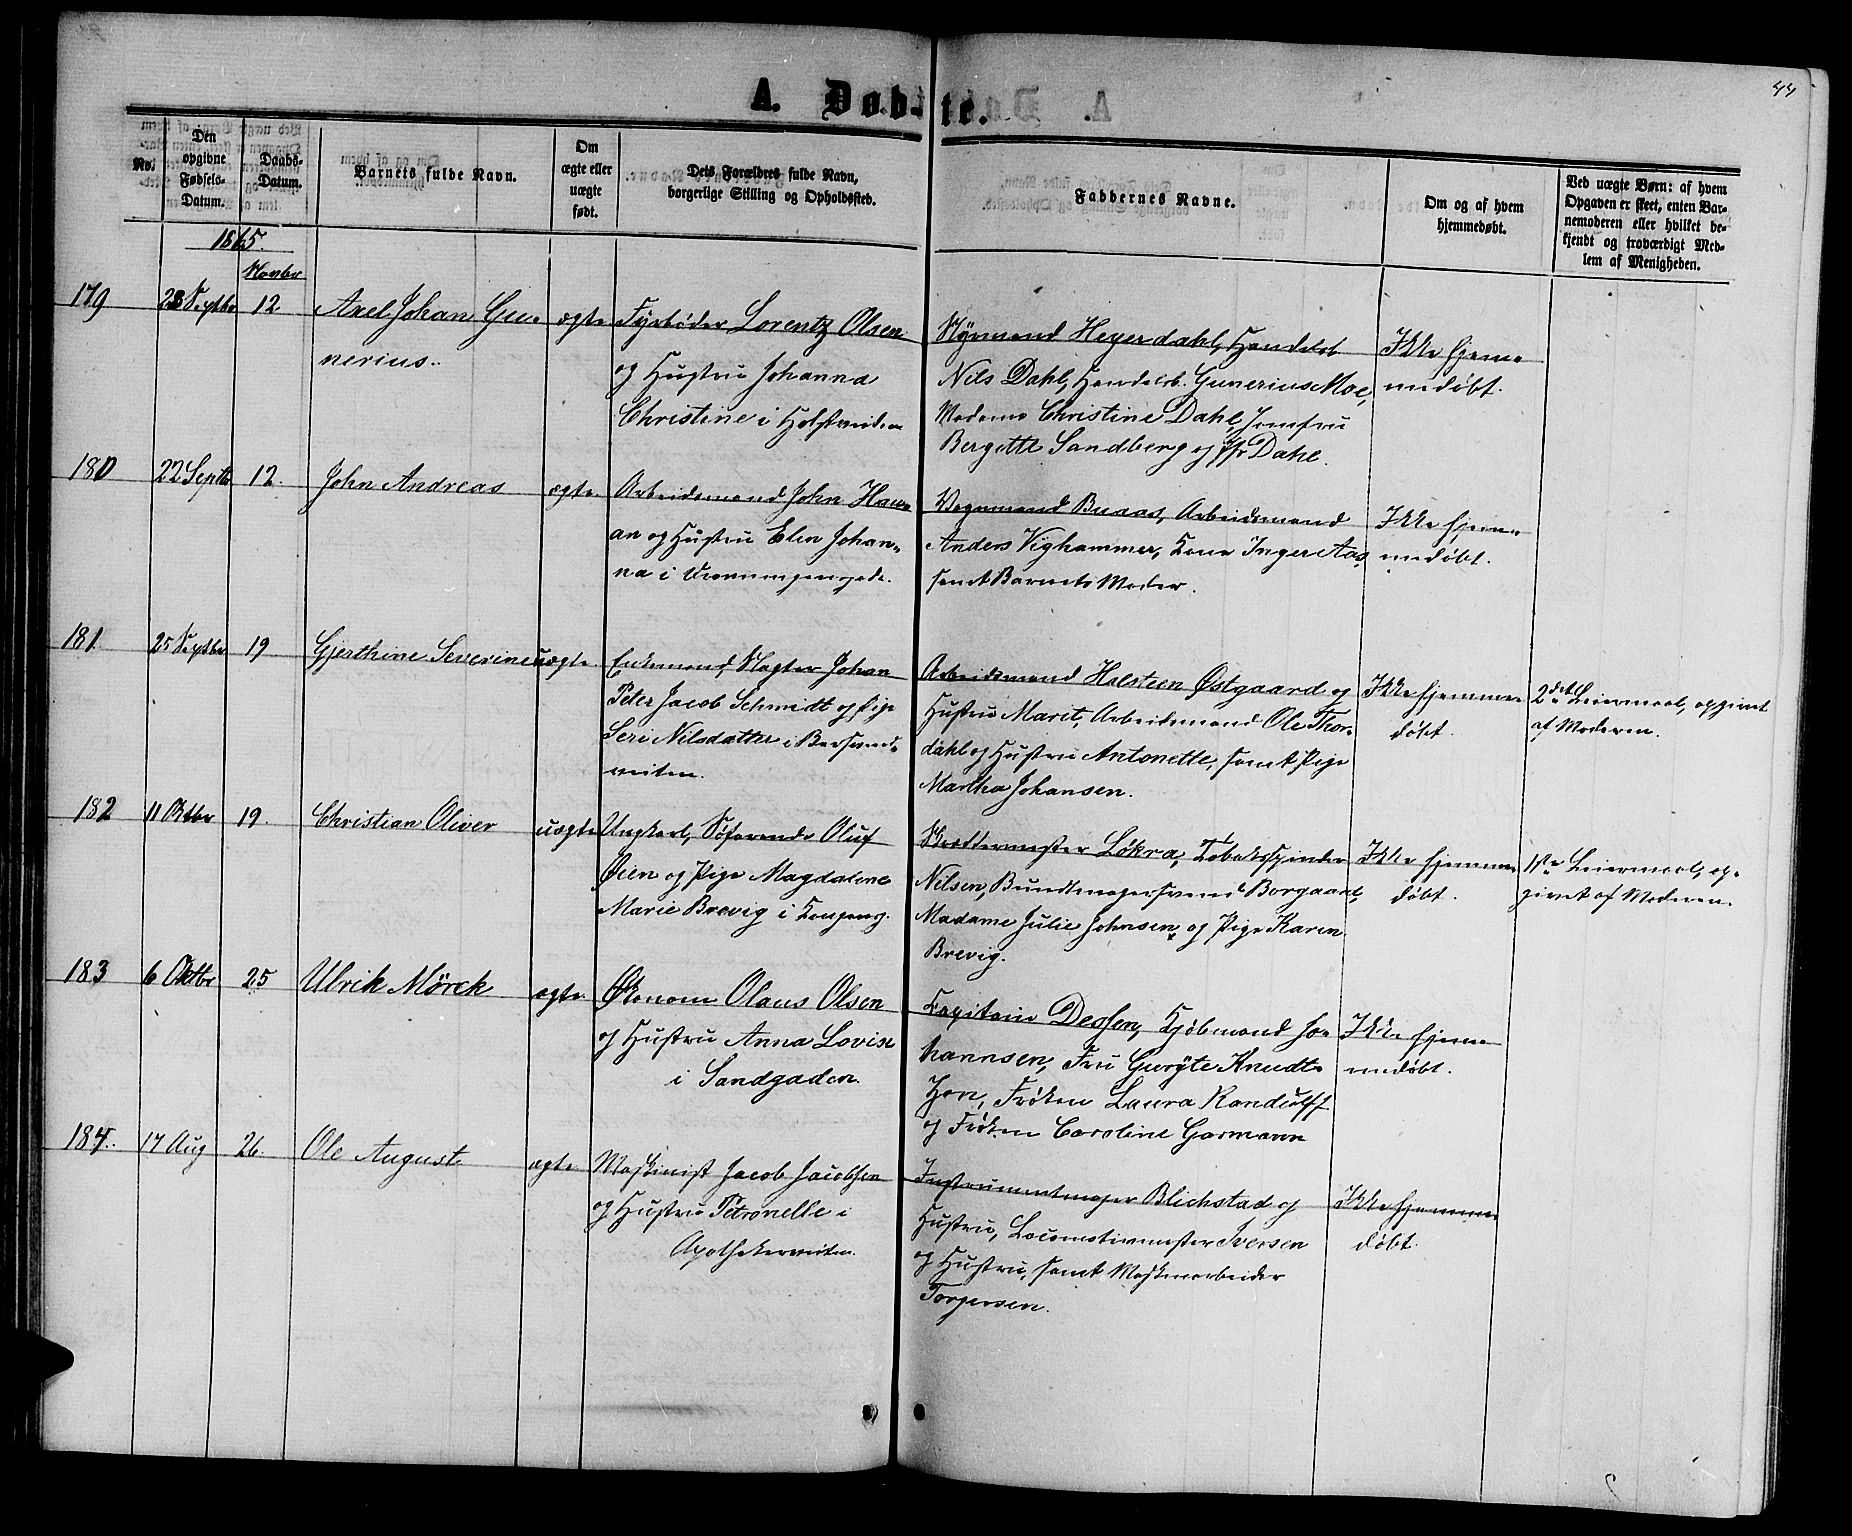 44
A. Døb-te.
No.
Den opgivne Fødsels-Datum.
Daabs-Datum.
Barnets fulde Navn.
Om ægte eller uægte født.
Dets Forældres fulde Navn, borgerlige Stilling og Opholdssted.
Faddernes Navne.
Om og af hvem hjemmedøbt.
Ved uægte Børn: af hvem Opgaven er skeet, enten Barnemoderen eller hvilket bekjendt og troværdigt Medlem af Menigheden.
1865.
Novbr
179 23 Septbr 12 Axel Johan Gu- ægte Fyrbøder Lorentz Olsen
nerius.
og Hustru Johanna
Christine i
Styrmand Heyerdahl, Handelsb.
Nils Dahl, Handelsb. Gunerius Moe,
Madame Christine Dahl, Jomfru
Bergette Sandberg og Jfr Dahl.
Ikke hjem-
medøbt.
180 22 Septb 12. John Andreas ægte Arbeidsmand John Hau-
an og Hustru Elen Johan-
na i
Vognmand Buaas, Arbeidsmand
Anders Vighammer, Kone Inger Aas
samt Barnets Moder.
Ikke hjem-
medøbt.
181. 25 Septbr 19 Gjerthine Severine uægte Enkemand, Slagter Johan
Peter Jacob Schmidt og Pige
Seri Nilsdatter i
veiten.
Arbeidsmand Halsteen Østgaard og
Hustru Marit, Arbeidsmand Ole Thor-
dahl og Hustru Antonette, samt Pige
Martha Johansen.
Ikke hjemme
døbt.
2det Leiermaal, opgivet
af Moderen.
182 11 Oktbr 19. Christian Oliver uægte Ungkarl, Søfarende Oluf
Øien og Pige Magdalene
Marie Brevig i Kongensg.
Løkra, Tobaksspinder
Nilsen, Bundtmagersvend Borgaard,
Madame Julie Johnsen, og Pige Karen
Brevig.
Ikke hjemme
døbt.
1ste Leiermaal, op-
givet af Moderen.
183 6 Oktbr 25 Ulrik Mörck ægte Økonom Olaus Olsen
og Hustru Anna Lovise
i Sandgaden.
Capitain Dessen, Kjøbmand Jo-
hannsen, Fru Knudt-
zon, Frøken Laura Randulff
og Frøken Caroline Garmann
Ikke hjem-
medøbt.
184. 17 Aug 26. Ole August ægte Maskinist Jacob Jacobsen
og Hustru Petronelle i
Apothekerveiten.
Instrumentmager Blichstad og
Hustru, Locomotivmester Iversen
og Hustru, samt Maskinarbeider
Torgersen.
Ikke hjemme
døbt.